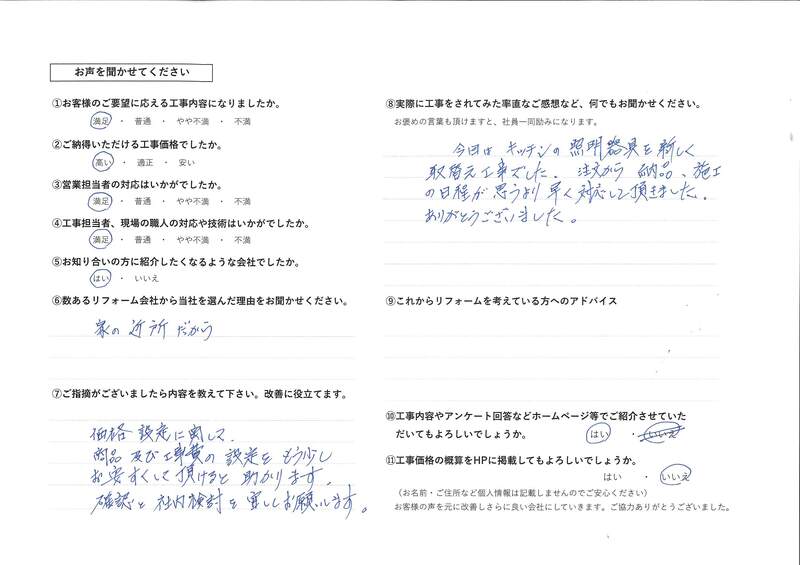 お声を聞かせてください
①お客様のご要望に応える工事内容になりましたか。
満足 ・ 普通 ・ やや不満 ・ 不満
②ご納得いただける工事価格でしたか。
高い ・ 適正 ・ 安い
③営業担当者の対応はいかがでしたか。
満足 ・ 普通 ・ やや不満 ・ 不満
④工事担当者、現場の職人の対応や技術はいかがでしたか。
満足 ・ 普通 ・ やや不満 ・ 不満
⑤お知り合いの方に紹介したくなるような会社でしたか。
はい ・ いいえ
⑥数あるリフォーム会社から当社を選んだ理由をお聞かせください。
家の近所だから
⑦ご指摘がございましたら内容を教えて下さい。改善に役立てます。
価格設定に関して、
商品及び工事費の設定をもう少し
お安すくして頂けると助かります。
確認と社内検討を宜しくお願いします。
⑧実際に工事をされてみた率直なご感想など、何でもお聞かせください。
お褒めの言葉も頂けますと、社員一同励みになります。
今回はキッチンの照明器具を新しく
取替え工事でした。注文から納品、施工
の日程が思うより早く対応して頂きました。
ありがとうございました。
⑨これからリフォームを考えている方へのアドバイス
⑩工事内容やアンケート回答などホームページ等でご紹介させていた
だいてもよろしいでしょうか。 はい ・ いいえ
⑪工事価格の概算をHPに掲載してもよろしいでしょうか。
はい ・ いいえ
（お名前・ご住所など個人情報は記載しませんのでご安心ください）
お客様の声を元に改善しさらに良い会社にしていきます。ご協力ありがとうございました。